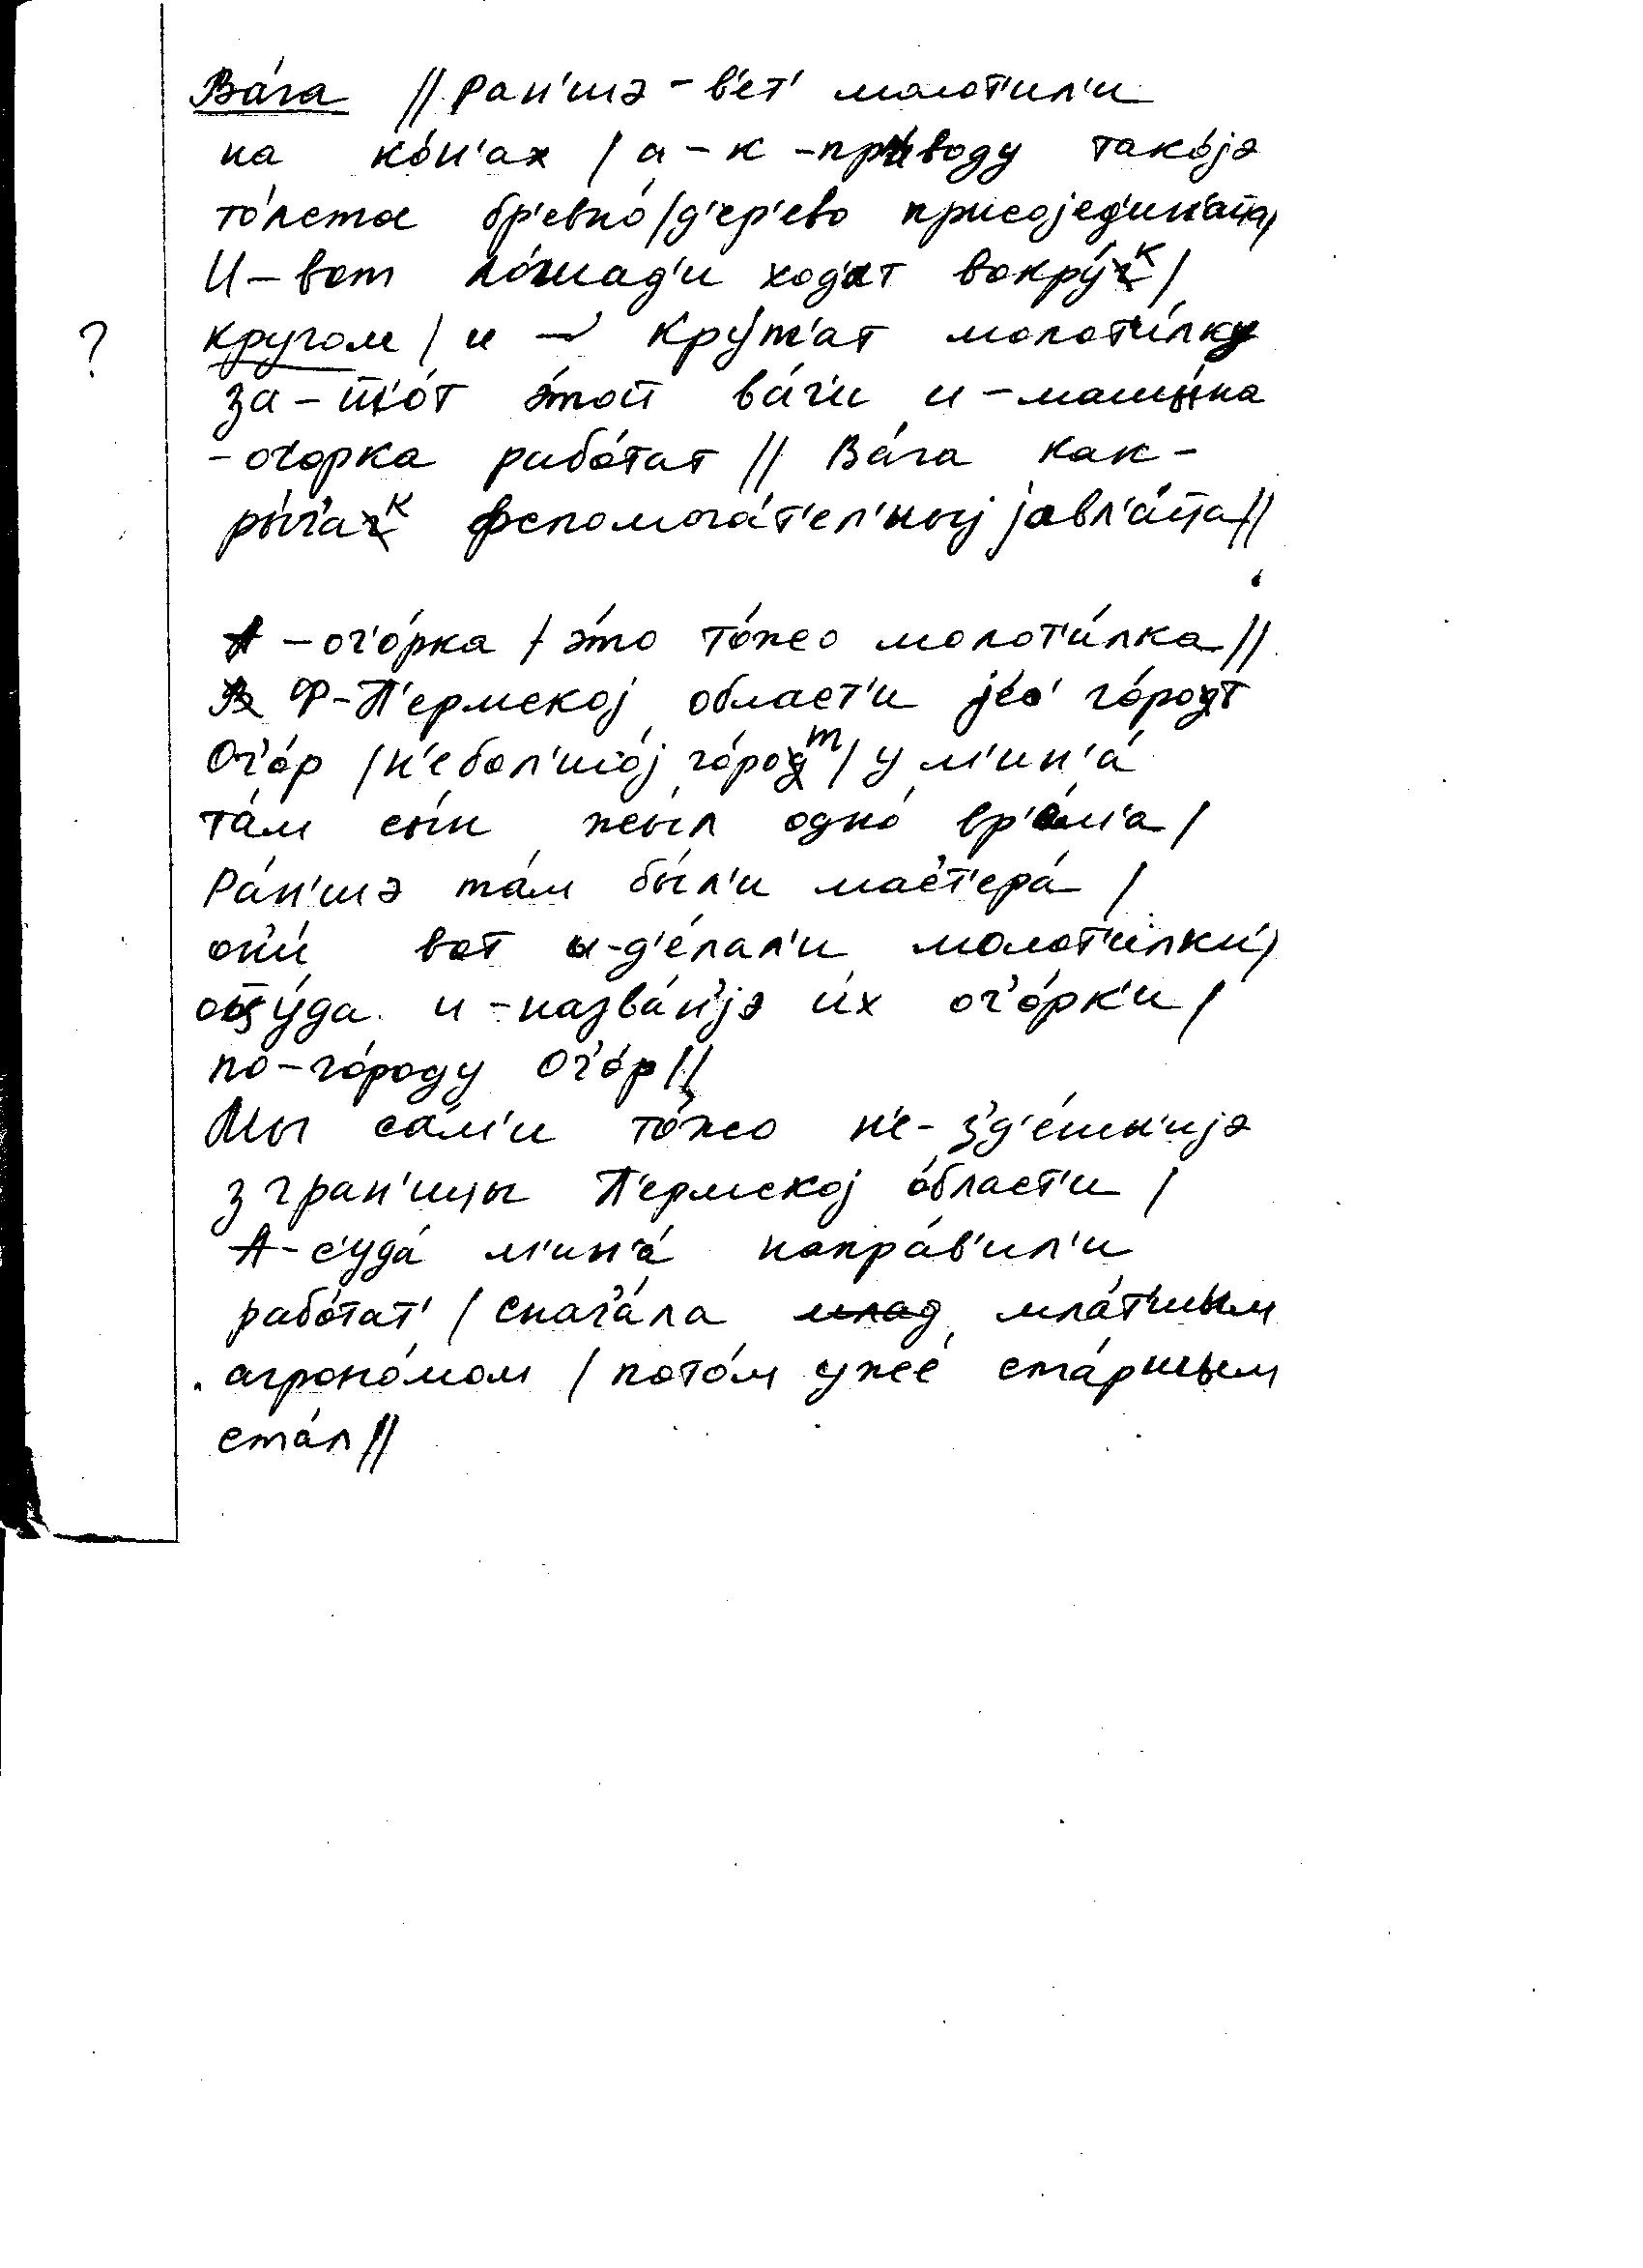 Ва́га // Ран'шэ – в'ет' молот'ил'и
на ко́н'ах / а – к – при́воду тако́јэ
то́лста бр'евно́ / д'ер'ево присојед'ин'а́тца /
И – вот ло́шад'и ход'ат вокру́к /
? кругом / и – кру́т'ат молот'и́лку
за – що́т э́той ва́г'и и – машы́на
– оч'орка рабо́тат // Ва́га как –
рыч'а́к фспомога́т'ел'ныј јавл'а́тца //
А – оч'о́рка / э́то то́жо молот'и́лка //
Ф – П'ермској област'и јес' го́рот
Оч'о́р / н'ебол'шо́ј го́рот / у м'ин'а́
та́м сы́н жы́л одно́ вр'е́м'а /
Ра́н'шэ та́м бы́л'и маст'ера́ /
он'и́ вот и – д'е́лал'и молот'и́лк'и /
отцу́да и – назва́н'јэ и́х оч'о́рк'и /
по – го́роду Оч'о́р //
Мы са́м'и то́жо н'е – зд'е́шн'ијэ
з гран'ицы П'ермској о́бласт'и /
А – с'уда́ м'ин'а́ напра́в'ил'и
рабо́тат' / снач'а́ла млад мла́тшым
агроно́мом / пото́м ужее́ ста́ршым
ста́л //